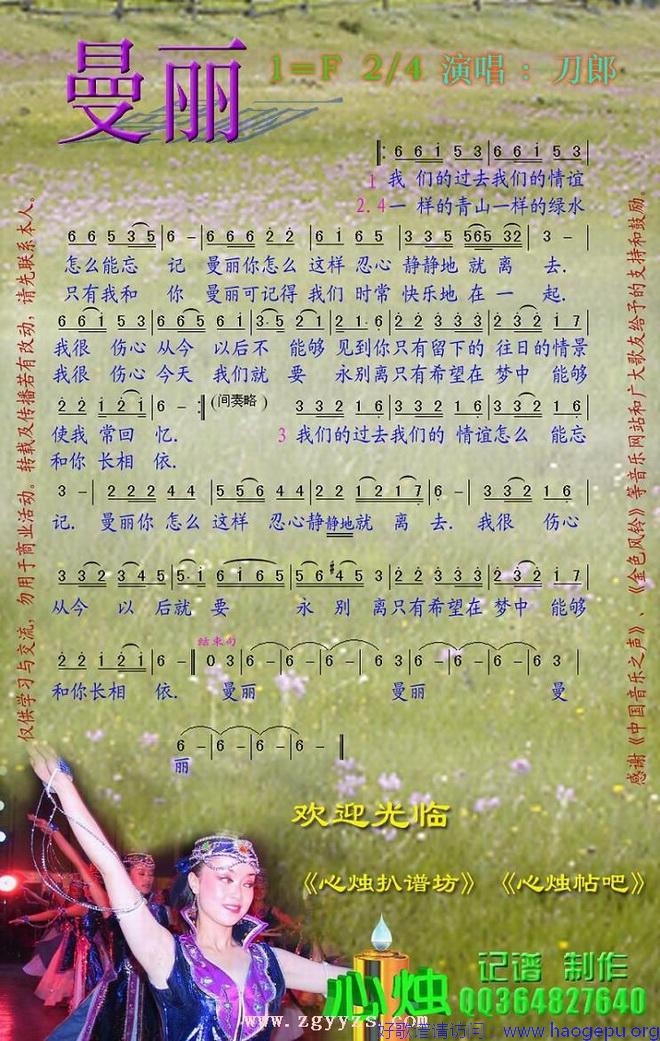 曼丽
1=F 2/4 演唱： 刀郎
1 我 们的过去我们的情谊
2.4 一 样的青山一样的绿水
怎么能忘 记 曼丽你怎么 这样 忍心 静静地 就 离 去.
只有我和 你 曼丽可记得 我们 时常 快乐地 在 一 起.
我很 伤心 从今 以后不 能够 见到你只有留下的 往日的情景
我很 伤心 今天 我们就 要 永别离只有希望在 梦中 能够
(间奏略)
使我 常回 忆. 3 我们的过去我们的 情谊怎么 能忘
和你 长相 依.
记. 曼丽你 怎么 这样 忍心静静地就 离 去. 我很 伤心
从今 以 后就 要 永 别 离只有希望在 梦中 能够
结束句
和你长相 依. 曼丽 曼丽 曼
丽
仅供学习与交流，勿用于商业活动。转载及传播若有改动，请先联系本人。
感谢《中国音乐之声》、《金色风铃》等音乐网站和广大歌友给予的支持和鼓励
欢迎光临
《心烛扒谱坊》 《心烛帖吧》
心烛 记谱 制作
QQ364827640
www.zgyyzs.com
好歌谱请访问 www.haogepu.org